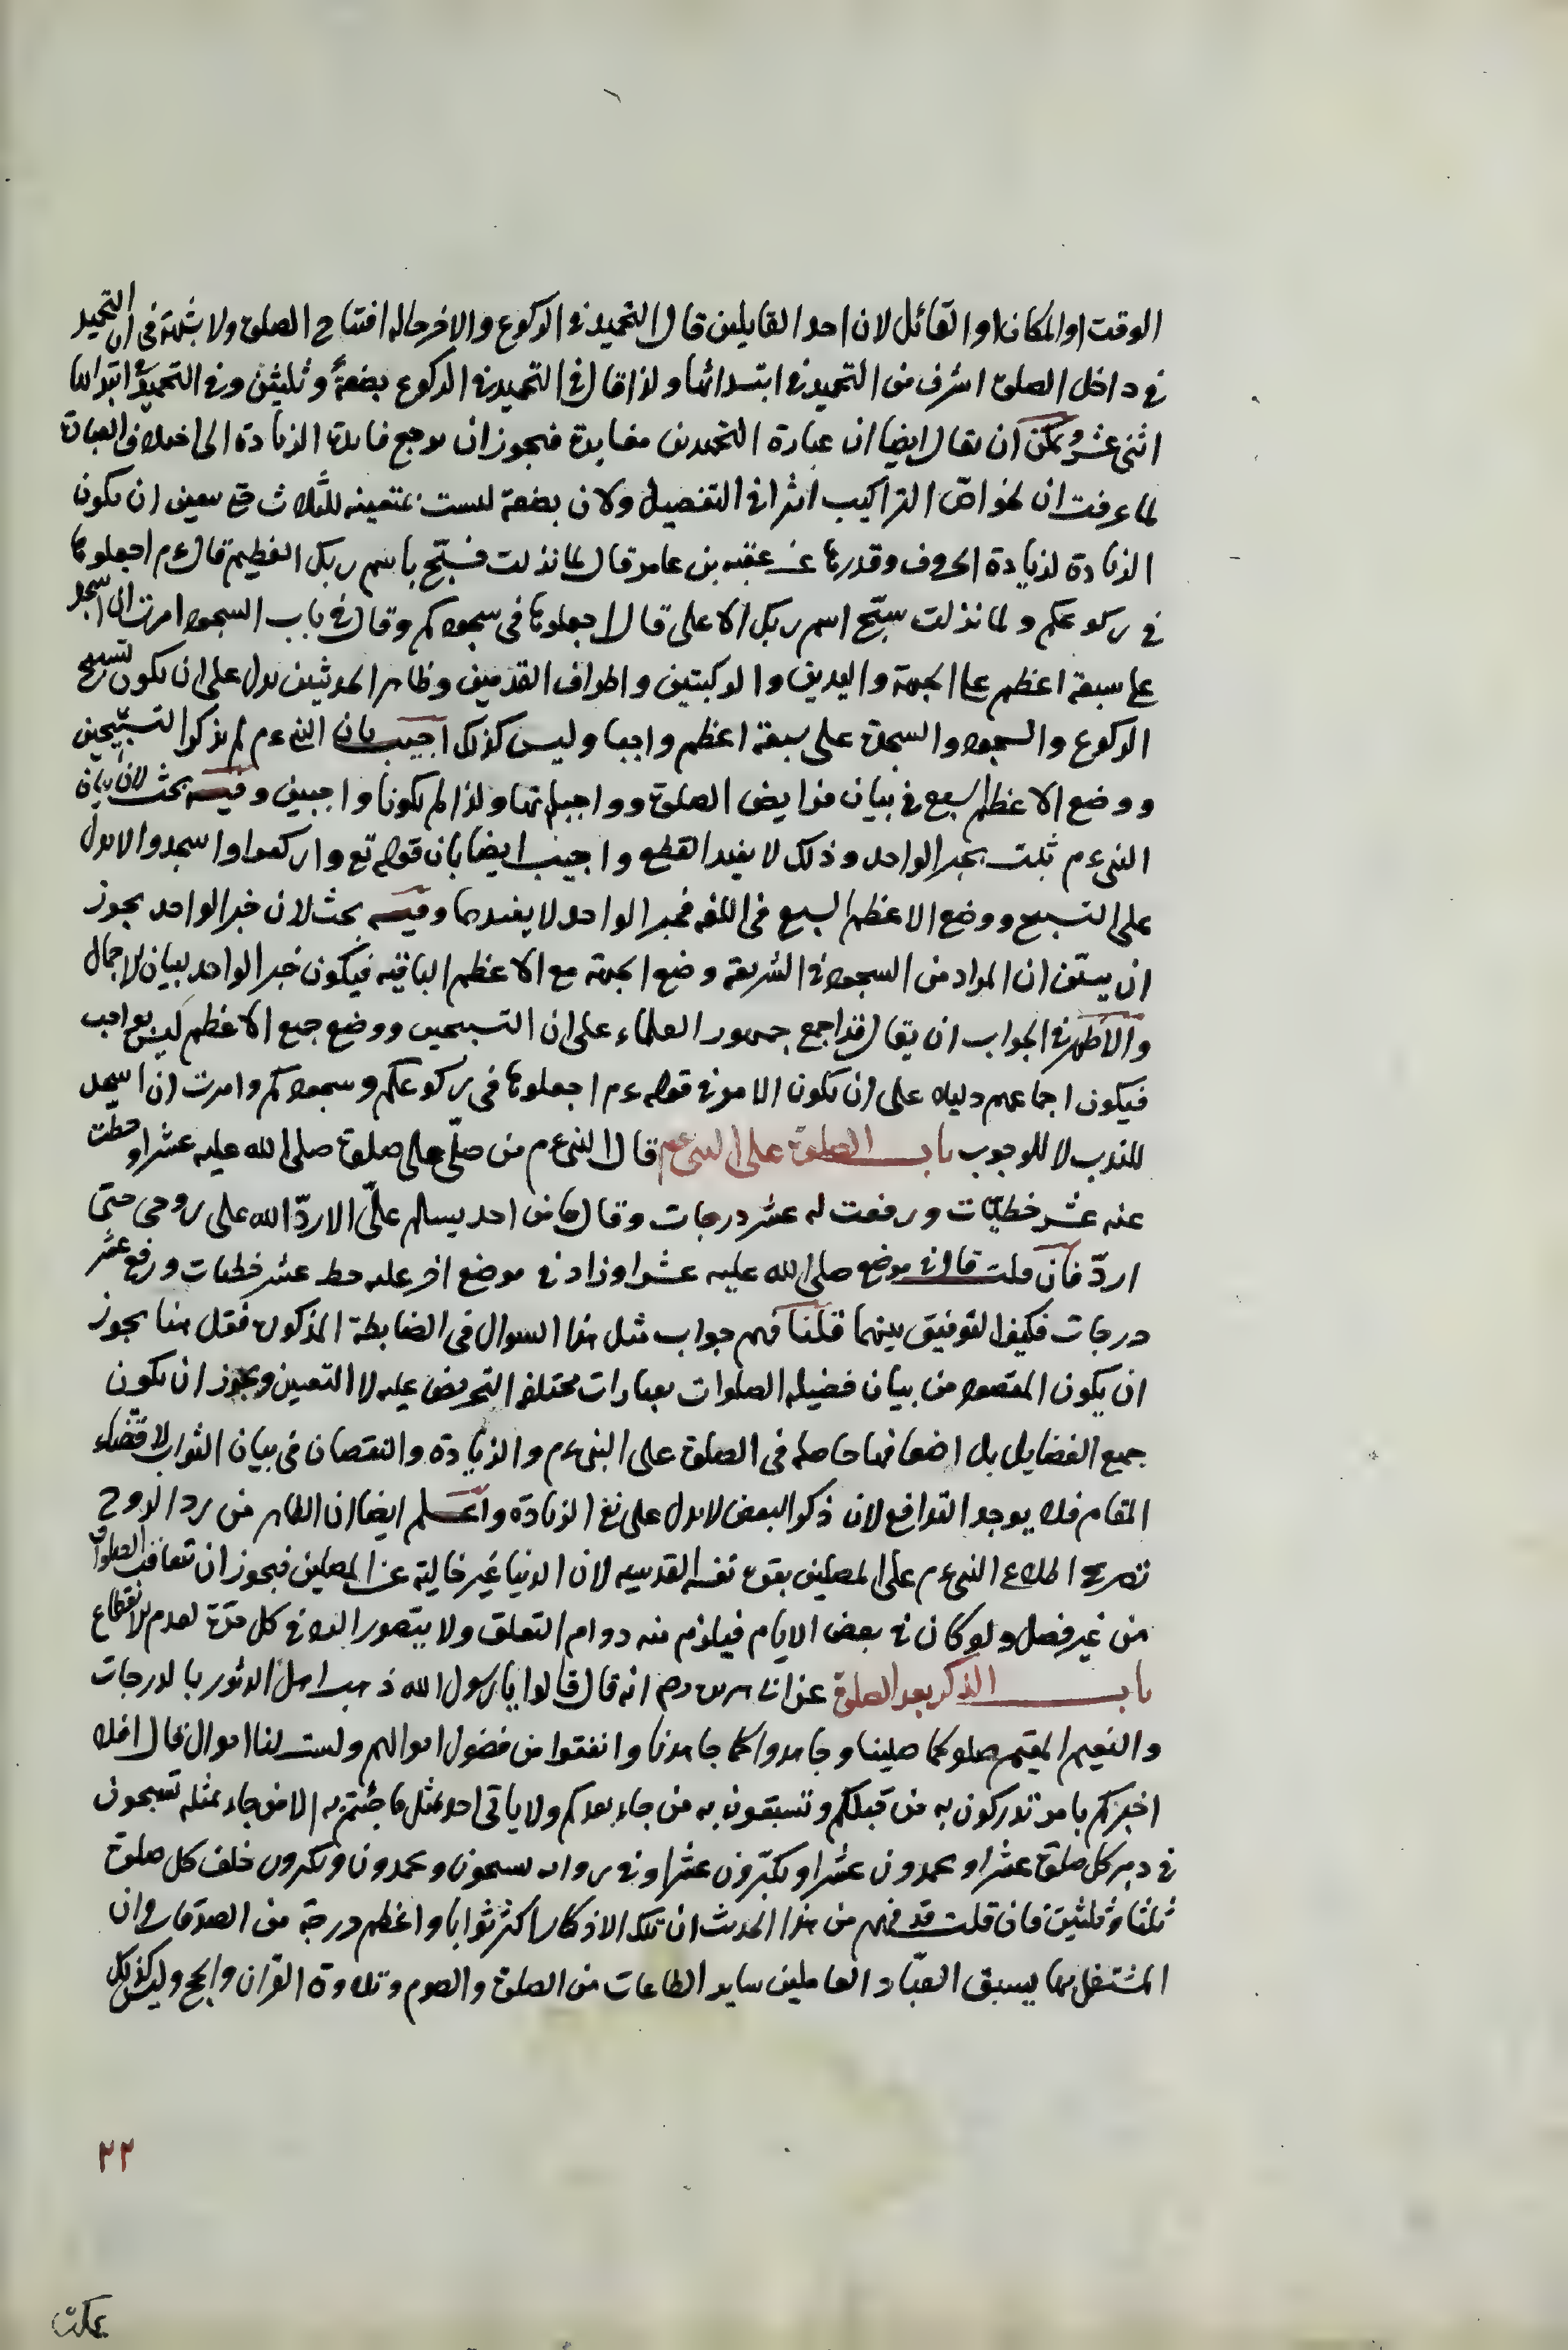 الوقت او المكان او القائل لان احد القايلين قال التحميد في الركوع والاخر حاله افتتاح الصلوة ولا شبهة في ان التحميد
في داخل الصلوة اشرف من التحميد في ابتدائها ولذا قال في التحميد في الركوع بضعة وثلثين وفي التحميد في ابتدائها
اثنى عشر ويمكن ان يقال ايضا ان عبارة التحميدين مغايرة فيجوز ان يرجع فايدة الزيادة الى اختلاف العبارة
لما عرفت ان لخواص التراكيب اثرا في التفصيل ولان بضعة ليست بمتعينه للثلاث حتى يتعين ان يكون
الزيادة لزيادة الحروف وقدرها عن عقبه بن عامر قال لما نزلت فسبح باسم ربك العظيم قال عم اجعلوها
في ركوعكم ولما نزلت سبح اسم ربك الاعلى قال اجعلوها في سجودكم وقال في باب السجود امرت ان اسجد
على سبعة اعظم على الجبهة واليدين والركبتين واطراف القدمين وظاهر الحديثين يدل على ان يكون تسبيح
الركوع والسجود والسجدة على سبعة اعظم واجبا وليس كذلك اجيب بان النبي عم لم يذكر التسبيحين
ووضع الاعظم السبع في بيان فرايض الصلوة وواجباتها ولذا لم يكونا واجبين وفيه بحث لان بيان
النبي عم ثبت بخبر الواحد وذلك لا يفيد القطع واجيب ايضا بان قوله تع واركعوا واسجدوا لا يدل
على التسبيح ووضع الاعظم السبع في اللغه فخبر الواحد لا يفيدهما وفيه بحث لان خبر الواحد يجوز
ان يبين ان المراد من السجود في الشريعة وضع الجبهة مع الاعظم الباقيه فيكون خبر الواحد لبيان الاجمال
والاظهر في الجواب ان يقال قد اجمع جمهور العلماء على ان التسبيحين ووضع جميع الاعظم ليس بواجب
فيكون اجماعهم دليلا على ان يكون الامر في قوله عم اجعلوها في ركوعكم وسجودكم وامرت ان اسجد
للندب لا للوجوب باب الصلوة على النبي عم قال النبي عم من صلى على صلوة صلى الله عليه عشرا وحطت
عنه عشر خطيئات ورفعت له عشر درجات وقال ما من احد يسلم علي الا رد الله على روحي حتى
ارد فان قلت قال في موضع صلى الله عليه عشرا وزاد في موضع اخر عليه حط عشر خطيئات ورفع عشر
درجات فكيف التوفيق بينهما قلنا فهم جواب مثل هذا السوال في الضابطة المذكورة فقل هنا يجوز
ان يكون المقصود من بيان فضيله الصلوات بعبارات مختلفة التحريض عليه لا التعيين ويجوز ان يكون
جميع الفضايل بل اضعافها حاصله في الصلوة على النبي عم والزيادة والنقصان في بيان الثواب لاقتضاء
المقام فلا يوجد التدافع لان ذكر البعض لا يدل على نفي الزيادة واعلم ايضا ان الظاهر من رد الروح
تصريح اطلاع النبي عم على المصلين بقوة نفسه القدسيه لان الدنيا غير خالية عن المصلين فيجوز ان تتعاقب الصلوات
من غير فصل ولو كان في بعض الايام فيلزم منه دوام التعلق ولا يتصور الرد في كل مرة لعدم الانقطاع
باب الذكر بعد الصلوة عن ابي هريرة رضه انه قال قالوا يا رسول الله ذهب اهل الدثور بالدرجات
والنعيم المقيم صلوا كما صلينا وجاهدوا كما جاهدنا وانفقوا من فضول اموالهم وليست لنا اموال قال افلا
اخبركم بامر تدركون به من قبلكم وتسبقون به من جاء بعدكم ولا ياتي احد بمثل ما جئتم به الا من جاء بمثله تسبحون
في دبر كل صلوة عشرا وتحمدون عشرا وتكبرون عشرا وفي رواية تسبحون وتحمدون وتكبرون خلف كل صلوة
ثلثا وثلثين فان قلت قد فهم من هذا الحديث ان تلك الاذكار اكثر ثوابا واعظم درجة من الصدقات وان
المشتغل بها يسبق العباد العاملين ساير الطاعات من الصلوة والصوم وتلاوة القران والحج وليس كذلك
٢٢
يمكن